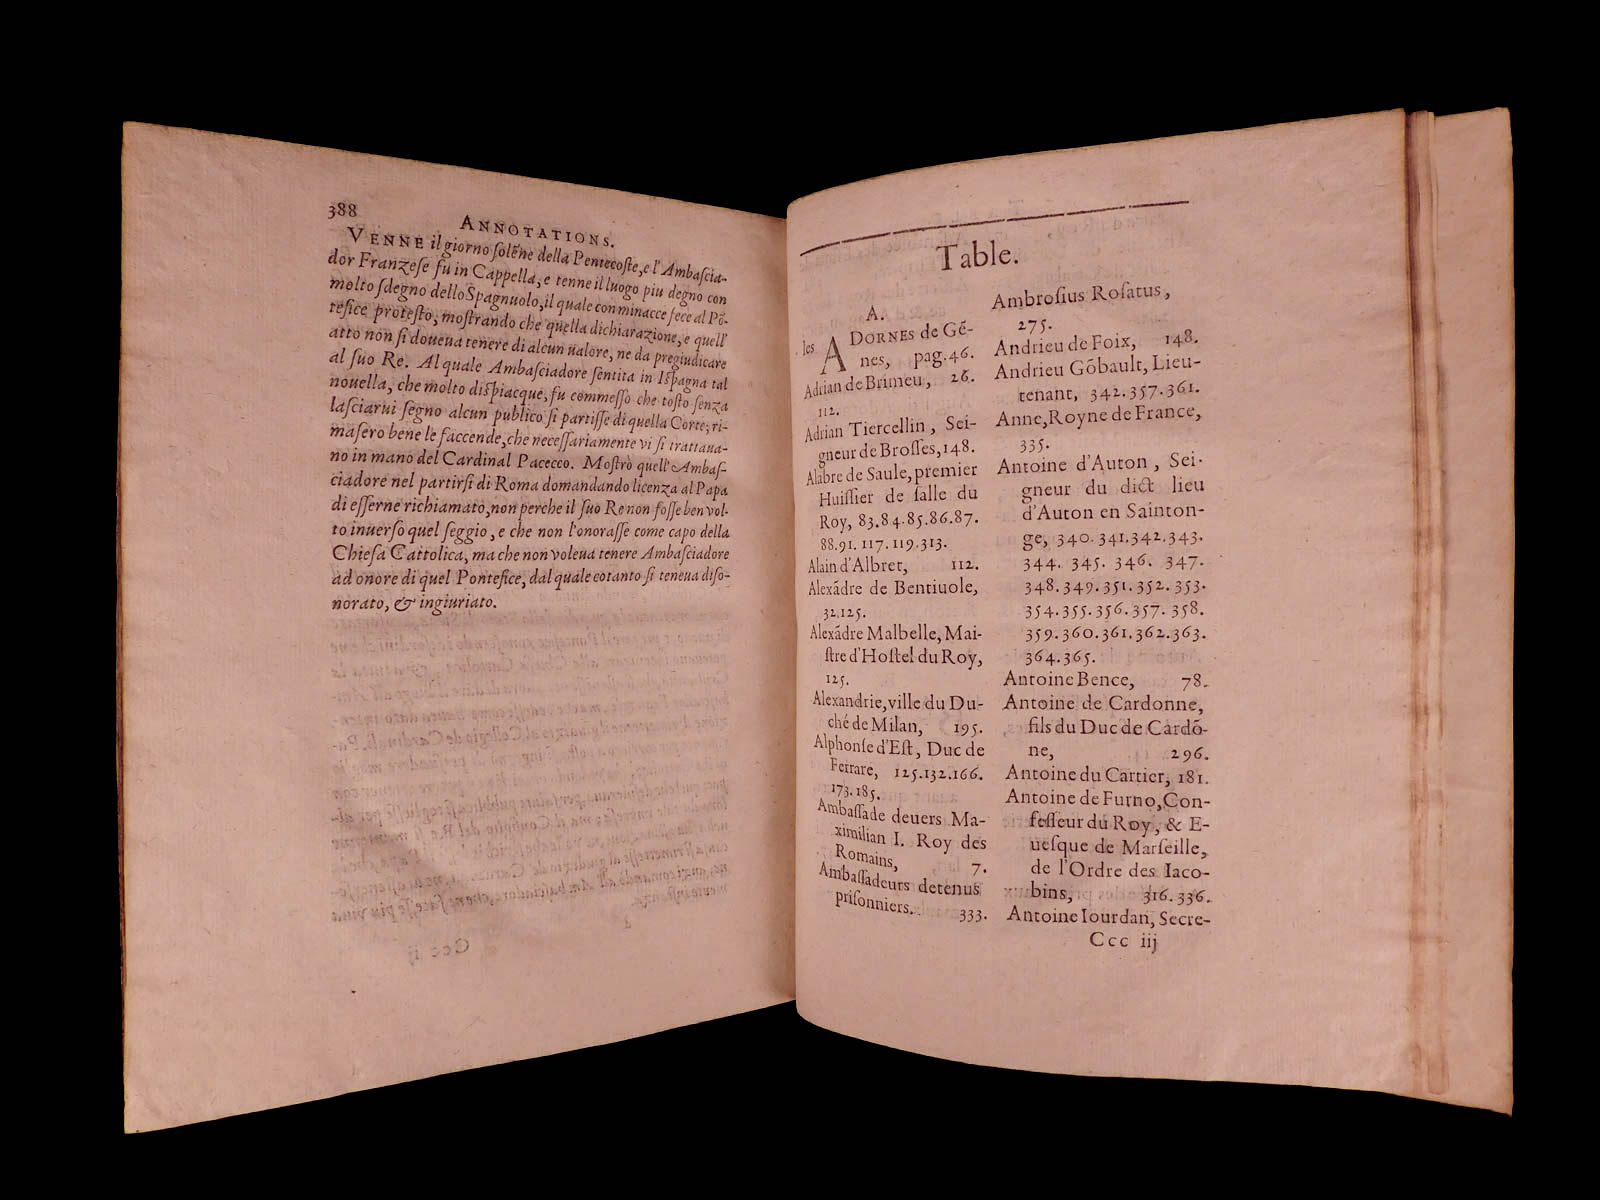 388
ANNOTATIONS.
VENNE il giorno ſolẽne della Pentecoſte, e l'Ambaſcia-
dor Franzeſe fu in Cappella, e tenne il luogo piu degno con
molto ſdegno dello Spagnuolo, il quale con minacce fece al Põ-
tefice proteſto, moſtrando che quella dichiarazione, e quell'
atto non ſi doueua tenere di alcun ualore, ne da pregiudicare
al ſuo Re. Al quale Ambaſciadore ſentita in Iſpagna tal
nouella, che molto diſpiacque, fu commeſſo che toſto ſenza
laſciarui ſegno alcun publico ſi partiſſe di quella Corte; ri-
maſero bene le faccende, che neceſſariamente vi ſi trattaua-
no in mano del Cardinal Pacecco. Moſtrò quell' Ambaſ-
ciadore nel partirſi di Roma domandando licenza al Papa
di eſſerne richiamato, non perche il ſuo Re non foſſe ben vol-
to inuerſo quel ſeggio, e che non l'onoraſſe come capo della
Chieſa Cattolica, ma che non voleua tenere Ambaſciadore
ad onore di quel Pontefice, dal quale cotanto ſi teneua diſo-
norato, & ingiuriato.
Table.
A.
les ADORNES de Gẽ-
nes, pag. 46.
Adrian de Brimeu, 26.
112.
Adrian Tiercellin, Sei-
gneur de Broſſes, 148.
Alabre de Saule, premier
Huiſſier de ſalle du
Roy, 83. 84. 85. 86. 87.
88. 91. 117. 119. 313.
Alain d'Albret, 112.
Alexãdre de Bentiuole,
32. 125.
Alexãdre Malbelle, Mai-
ſtre d'Hoſtel du Roy,
125.
Alexandrie, ville du Du-
ché de Milan, 195.
Alphonſe d'Eſt, Duc de
Ferrare, 125. 132. 166.
173. 185.
Ambaſſade deuers Ma-
ximilian I. Roy des
Romains, 7.
Ambaſſadeurs detenus
priſonniers. 333.
Ambroſius Roſatus,
275.
Andrieu de Foix, 148.
Andrieu Gõbault, Lieu-
tenant, 342. 357. 361.
Anne, Royne de France,
335.
Antoine d'Auton, Sei-
gneur du dict lieu
d'Auton en Sainton-
ge, 340. 341. 342. 343.
344. 345. 346. 347.
348. 349. 351. 352. 353.
354. 355. 356. 357. 358.
359. 360. 361. 362. 363.
364. 365.
Antoine Bence, 78.
Antoine de Cardonne,
fils du Duc de Cardõ-
ne, 296.
Antoine du Cartier, 181.
Antoine de Furno, Con-
feſſeur du Roy, & E-
ueſque de Marſeille,
de l'Ordre des Iaco-
bins, 316. 336.
Antoine Iourdan, Secre-
Ccc iij